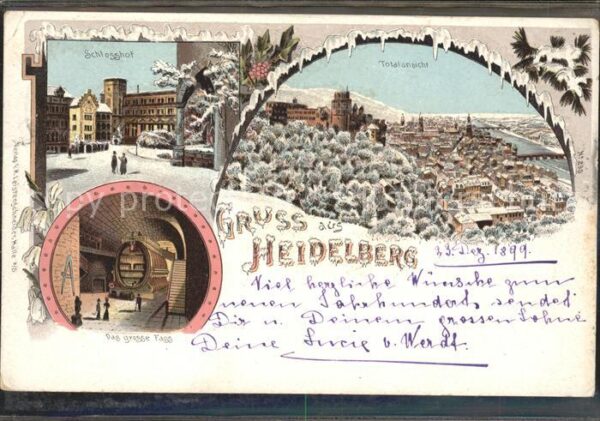 Schlosshof
Totalansicht
GRUSS aus
HEIDELBERG
Das grosse Fass
Dez. 1899.
Viel herzliche Wünsche zum
neuen Jahrhundert, sendet
Dir u. Deinem grossen Sohne
Deine Lucie v. Werdt.